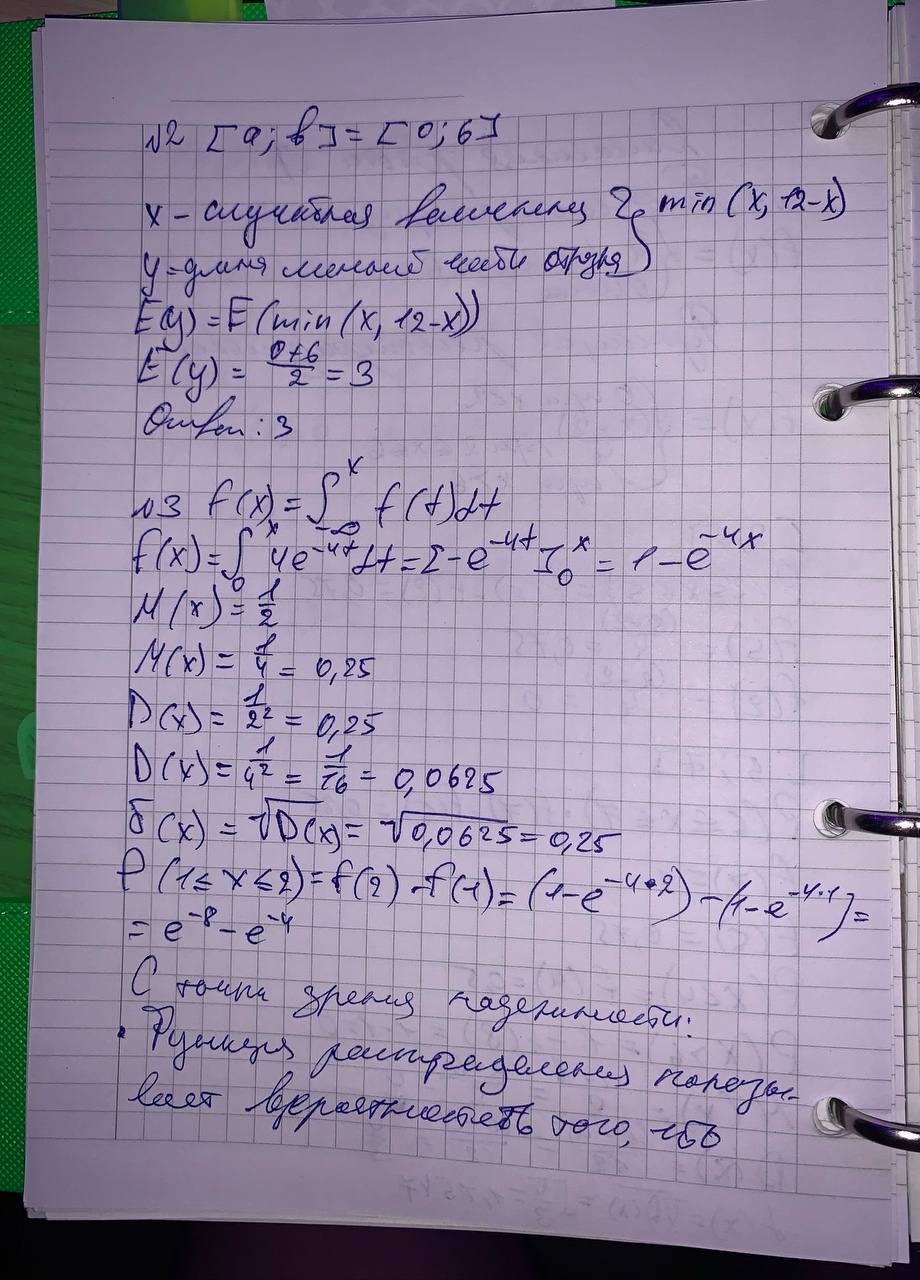 №2 [a; b] = [0; 6]
x - случайная величина } min (x, 12-x)
y = длина меньшей части отрезка
E(y) = E(min(x, 12-x))
E(y) = (0+6)/2 = 3
Ответ: 3
№3 f(x) = ∫_{-∞}^{x} f(t)dt
f(x) = ∫_0^x 4e^{-4t}dt = [-e^{-4t}]_0^x = 1 - e^{-4x}
M(x) = 1/2
M(x) = 1/4 = 0,25
D(x) = 1/2² = 0,25
D(x) = 1/4² = 1/16 = 0,0625
б(x) = √D(x) = √0,0625 = 0,25
P(1 ≤ x ≤ 2) = f(2) - f(1) = (1-e^{-4·2}) - (1-e^{-4·1}) =
= e^{-8} - e^{-4}
С точки зрения надежности:
• Функция распределения показы-
вает вероятность того,